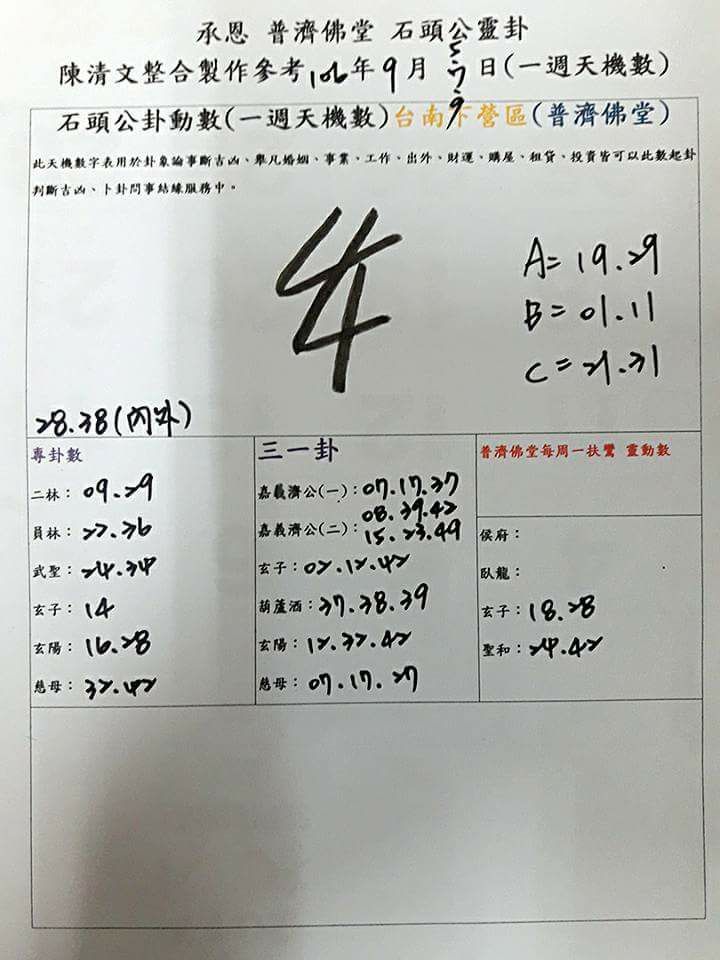 承恩 普濟佛堂 石頭公靈卦
陳清文整合製作參考106年9月5.7.9日(一週天機數)
石頭公卦動數(一週天機數)台南下營區(普濟佛堂)
此天機數字表用於卦象論事斷吉凶、舉凡婚姻、事業、工作、出外、財運、購屋、租貸、投資皆可以此數起卦
判斷吉凶、卜卦問事結緣服務中。
A=19.29
B=01.11
C=21.31
28.38(內外)
專卦數
二林：09.29
員林：27.36
武聖：24.34
玄子：14
玄陽：16.28
慈母：32.42
三一卦
嘉義濟公(一)：07.17.37
08.39.42
嘉義濟公(二)：15.23.49
玄子：02.12.42
葫蘆酒：37.38.39
玄陽：12.32.42
慈母：07.17.27
普濟佛堂每周一扶鸞 靈動數
侯府：
臥龍：
玄子：18.28
聖和：24.42